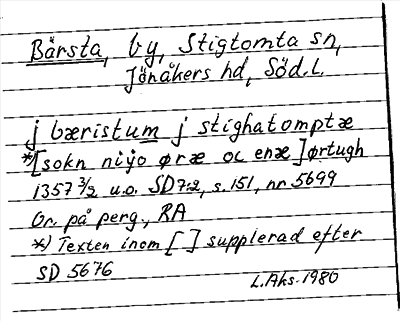 Bärsta, by, Stigtomta sn,
Jönåkers hd, Söd.l.
j bæristum j stighatomptæ
*)[sokn niyo øræ oc enæ]ørtugh
1357 3/2 u.o. SD 7:2, s. 151, nr 5699
Or. på perg., RA
*) Texten inom [ ] supplerad efter
SD 5676
L.Aks. 1980